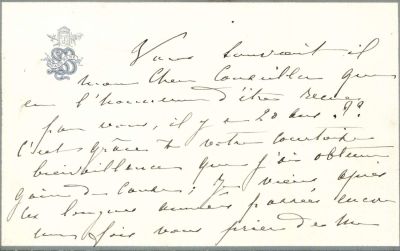 Vous souvient il
mon Cher Conseiller que
eu l'honneur d'être reçue
par vous, il y a 20 ans ??
C'est grâce à votre courtoise
bienveillance que j'ai obtenu
gain de cause; je viens après
les longues années passées encore
une fois vous prier de me